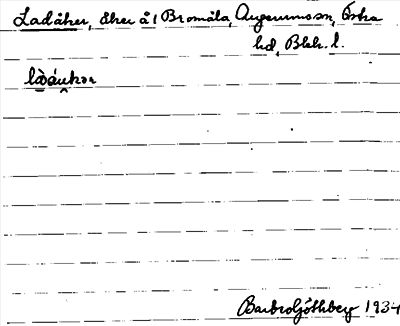 Ladåker, åker å 1 Bromåla, Augerumssn, Östra
hd, Blek. l.
làɔáu̯kər
Barbro Göthberg 1934